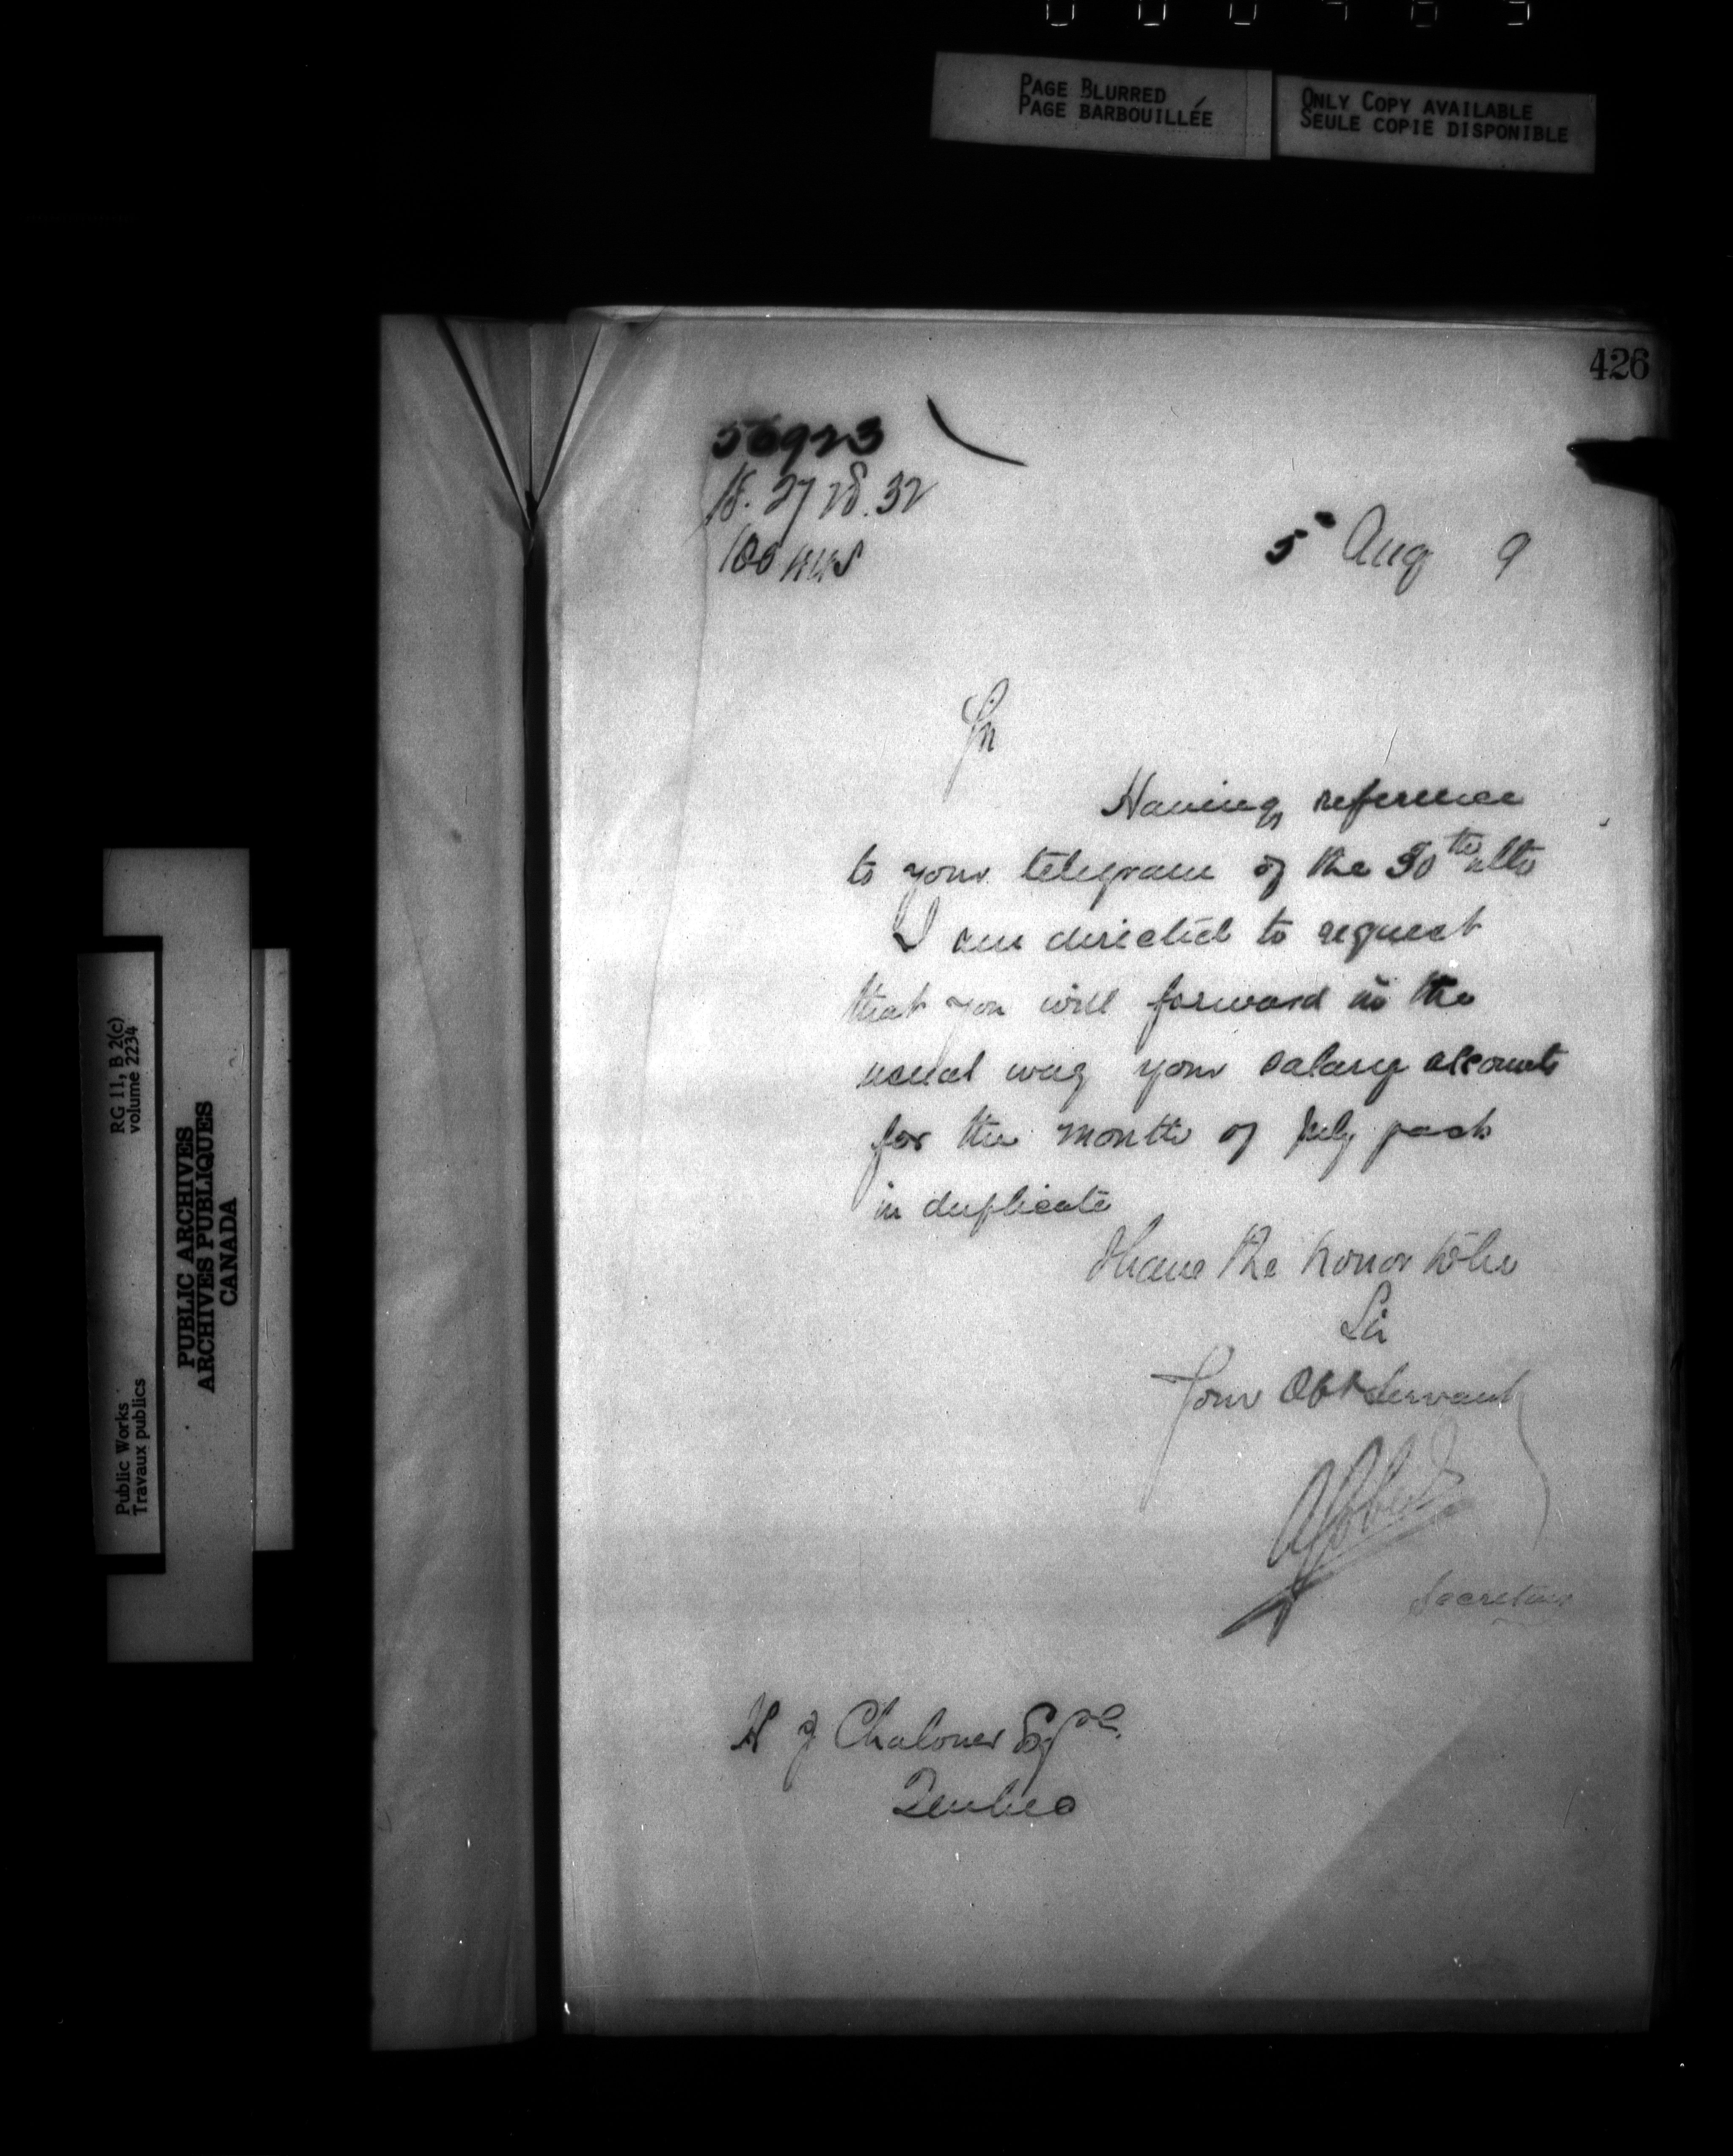 PAGE BLURRED
PAGE BARBOUILLÉE
ONLY COPY AVAILABLE
SEULE COPIE DISPONIBLE
426
56923
18. 27 28. 32
5 Aug 9
Sir
Having reference
to your telegram of the 30th ulto
I am directed to request
that you will forward in the
usual way your salary accounts
for the month of July past
in duplicate
I have the honor to be
Sir
Your Obt Servant
Secretary
H J Chaloner Esqre.
Quebec
RG 11, B 2(c)
volume 2234
PUBLIC ARCHIVES
ARCHIVES PUBLIQUES
CANADA
Public Works
Travaux publics